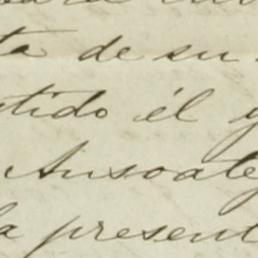 ta de su
tido él y
Ansoate
la present